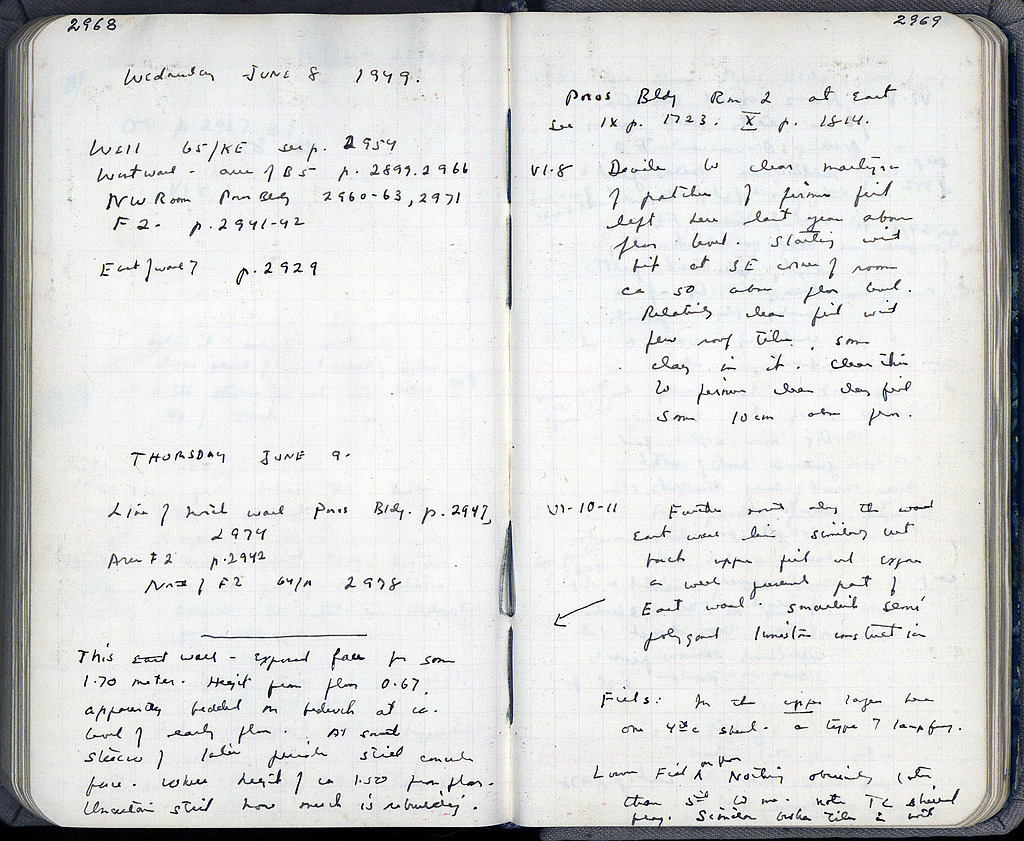 2968
Wednesday JUNE 8 1949.
Well G5/KE see p. 2954
West wall - area of B5 p. 2899, 2966
NW Room Poros Bldg 2960-63, 2971
F 2. p. 2941-42
East/wall? p. 2929
THURSDAY JUNE 9.
Line of north wall Poros Bldg. p. 2947,
2974
Area F2 p. 2942
North of F2 2978
This east wall - exposed face for some
1.70 meter. Height from floor 0.67.
apparently bedded on bedrock at ca.
level of early floor. At south
stereo of later period still conceals
face. Whole height of ca 1.50 from floor.
Uncertain still how much is rebuilding.
2969
Poros Bldg Rm 2 at East
see IX p. 1723. X p. 1814.
VI-8 Decide to clear
of patches of firmer fill
left here last year above
floor level. Starting with
bit at SE corner of room
ca 50 above floor level.
Relatively clean fill with
few roof tiles. Some
clay in it. Clear this
to firmer clean clay fill
some 10 cm above floor.
VI-10-11 Further north along the
East wall line similarly cut
back upper fill and expose
a well preserved part of
East wall. semi
polygonal limestone construction
Fields. In the upper layer have
one 4th c sherd. a type 7 lamp frag.
Lower Field on floor Nothing obviously later
than 5th to me. note TC
frag. Similar broken tiles in with